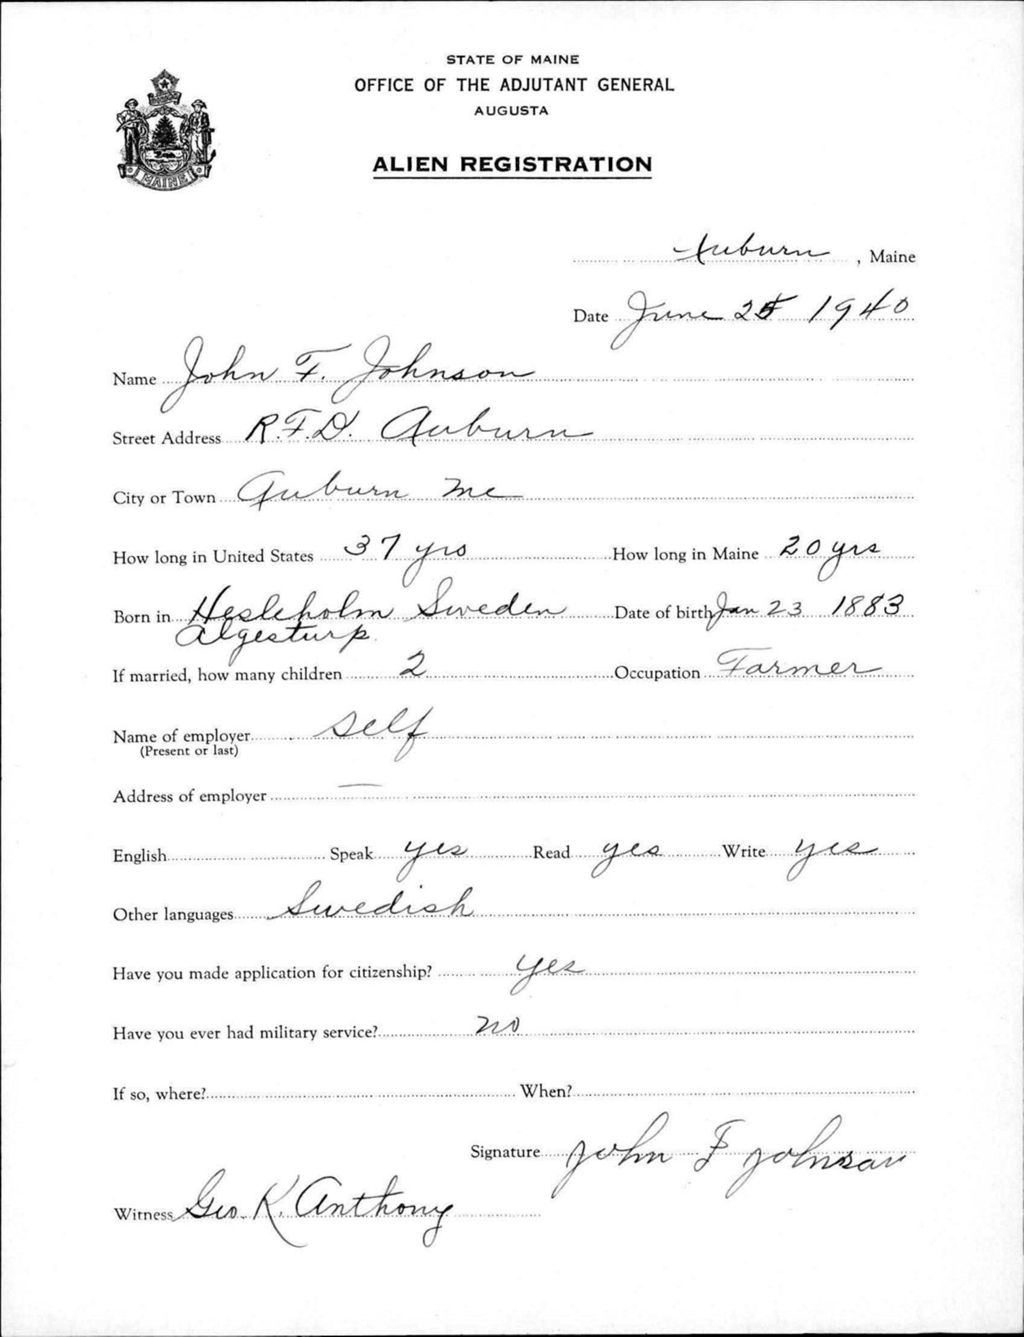 STATE OF MAINE
OFFICE OF THE ADJUTANT GENERAL
AUGUSTA
ALIEN REGISTRATION
MAINE
Auburn, Maine
Date June 25 1940
Name John F. Johnson
Street Address R.F.D. Auburn
City or Town Auburn Me
How long in United States 37 yrs How long in Maine 20 yrs
Born in Hesleholm Sweden Date of birth Jan 23 1883
Algesturp
If married, how many children 2 Occupation Farmer
Name of employer self
(Present or last)
Address of employer —
English Speak yes Read yes Write yes
Other languages Swedish
Have you made application for citizenship? yes
Have you ever had military service? no
If so, where? When?
Signature John F Johnson
Witness Geo. K. Anthony